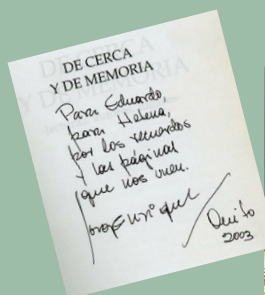 DE CERCA
Y DE MEMORIA
Para Eduardo,
para Helena,
por los recuerdos
y las páginas
que nos unen.
Jorge Enrique
Quito
2003